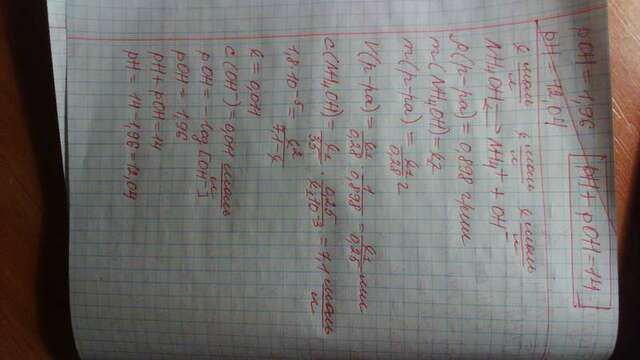 pOH = 1,96
pH + pOH = 14
pH = 12,04
k моль/л k моль/л k моль/л
NH4OH ⇄ NH4+ + OH-
ρ(р-ра) = 0,898 г/мл
m(NH4OH) = k2
m(р-ра) = k2/0,28 г
V(р-ра) = k2/0,28 · 1/0,898 = k2/0,25 мл
c(NH4OH) = k2/35 · 0,25/k2·10-3 = 7,1 моль/л
1,8·10-5 = k2/7,1-k
k = 0,011
c(OH-) = 0,011 моль/л
pOH = -log[OH-]
pOH = 1,96
pH + pOH = 14
pH = 14 - 1,96 = 12,04